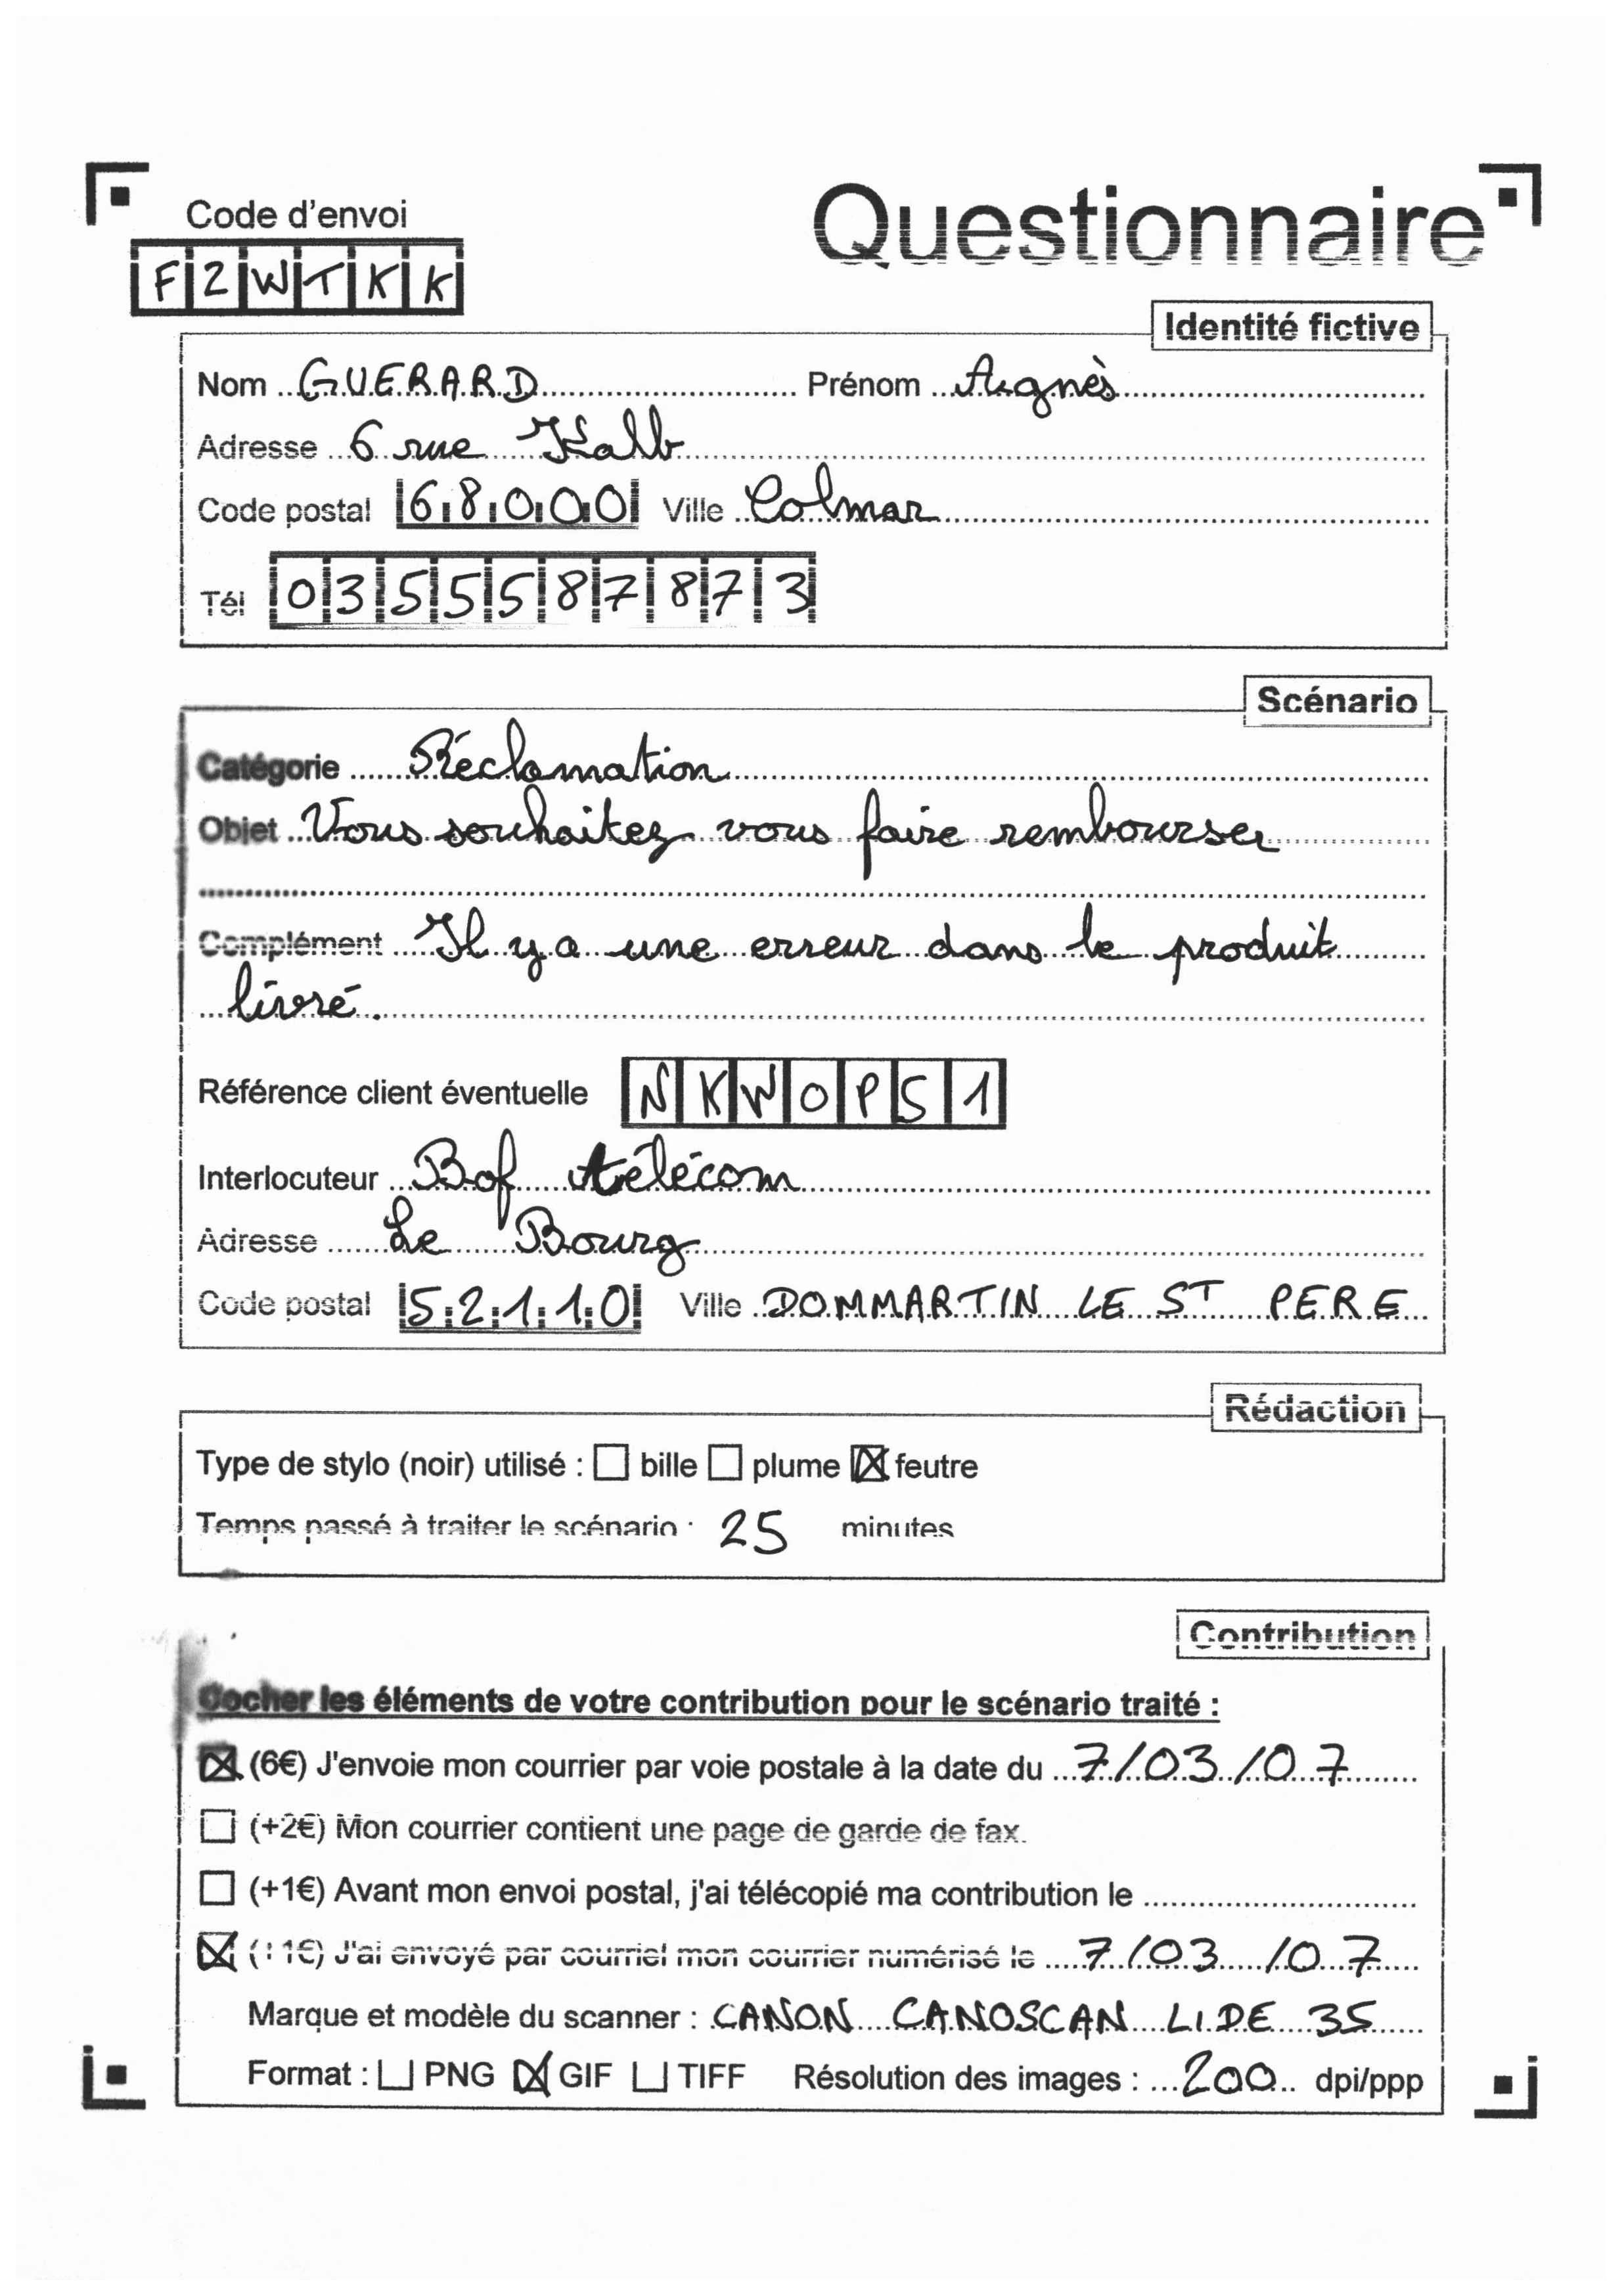 Code d'envoi
Questionnaire
F2WTKK
Identité fictive
Nom GUERARD Prénom Agnès
Adresse 6 rue Kalb
Code postal 68000 Ville Colmar
Tél 0355587873
Scénario
Catégorie Réclamation
Objet Vous souhaitez vous faire rembourser
Complément Il y a une erreur dans le produit
livré.
Référence client éventuelle NKWOPS1
Interlocuteur Bof télécom
Adresse Le Bourg
Code postal 52110 Ville DOMMARTIN LE ST PERE
Rédaction
Type de stylo (noir) utilisé : ☐ bille ☐ plume ☒ feutre
Temps passé à traiter le scénario : 25 minutes
Contribution
Cocher les éléments de votre contribution pour le scénario traité :
☒ (6€) J'envoie mon courrier par voie postale à la date du 7/03/07
☐ (+2€) Mon courrier contient une page de garde de fax.
☐ (+1€) Avant mon envoi postal, j'ai télécopié ma contribution le
☒ (+1€) J'ai envoyé par courriel mon courrier numérisé le 7/03/07
Marque et modèle du scanner : CANON CANOSCAN LIDE 35
Format : ☐ PNG ☒ GIF ☐ TIFF Résolution des images : 200 dpi/ppp